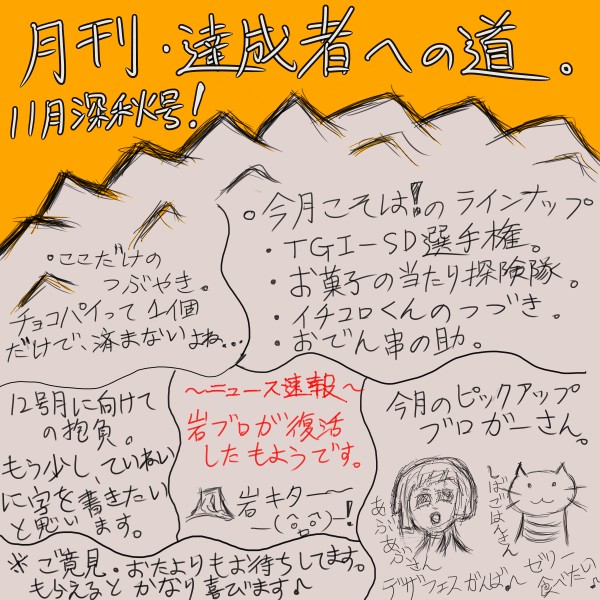 月刊・達成者への道。
11月深秋号!
。今月こそは!のラインナップ
・TGI-SD選手権。
・お菓子の当たり探険隊。
・イチコロくんのつづき。
・おでん串の助。
・ここだけの
つぶやき。
チョコパイって1個
だけで、済まないよね...
12号月に向けて
の抱負。
もう少し、ていねい
に字を書きたい
と思います。
〜ニュース速報〜
岩ブロが復活
したもようです。
岩キター
ー(^o^)ー!
今月のピックアップ
ブロガーさん。
あぶあぶさん
しばごはんさん
デザフェスがんば♪
ゼリー
食べたい♪
※ご意見・おたよりもお待ちしてます。
もらえるとかなり喜びます♪